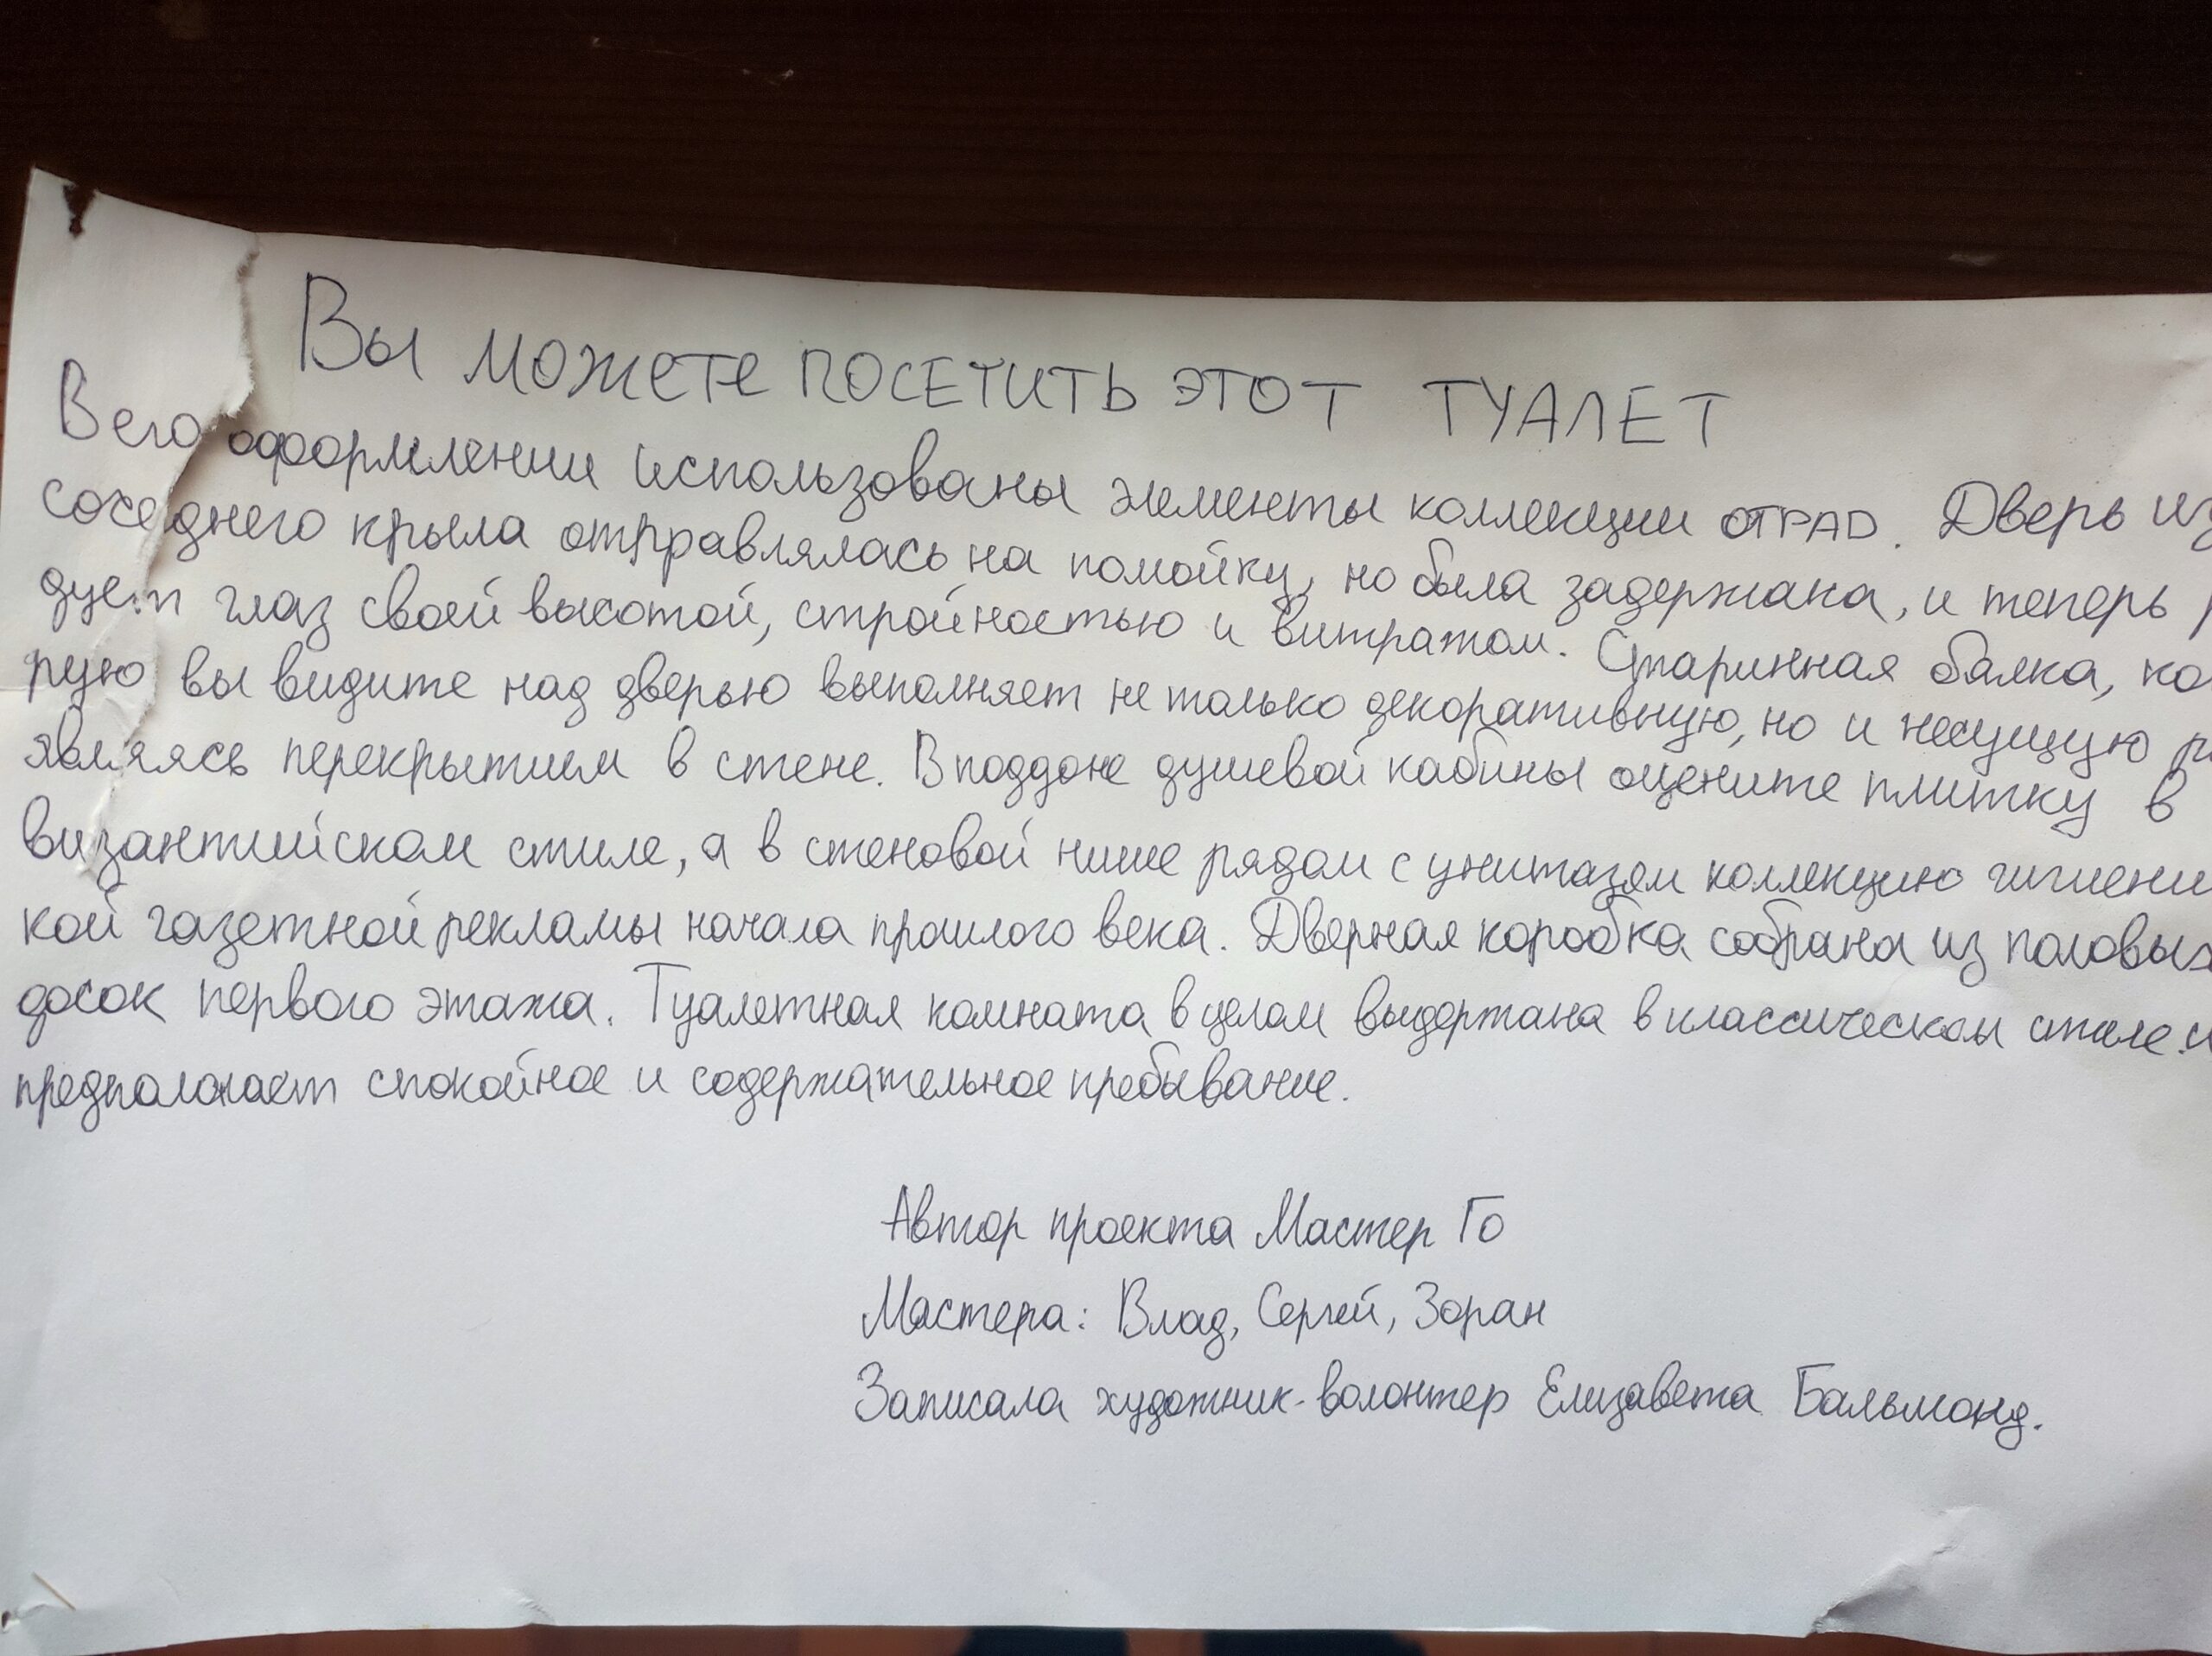 Вы можете посетить этот туалет
В его оформлении использованы элементы коллекции OTPAD. Дверь из
соседнего крыла отправлялась на помойку, но была задержана, и теперь р
дует глаз своей высотой, стройностью и витражом. Старинная балка, ко
рую вы видите над дверью выполняет не только декоративную, но и несущую
являясь перекрытием в стене. В поддоне душевой кабины оцените плитку в
византийском стиле, а в стеновой нише рядом с унитазом коллекцию гигиени
кой газетной рекламы начала прошлого века. Дверная коробка собрана из половых
досок первого этажа. Туалетная комната в целом выдержана в классическом стиле и
предполагает спокойное и содержательное пребывание.
Автор проекта Мастер Го
Мастера: Влад, Сергей, Зоран
Записала художник-волонтер Елизавета Бальмонд.